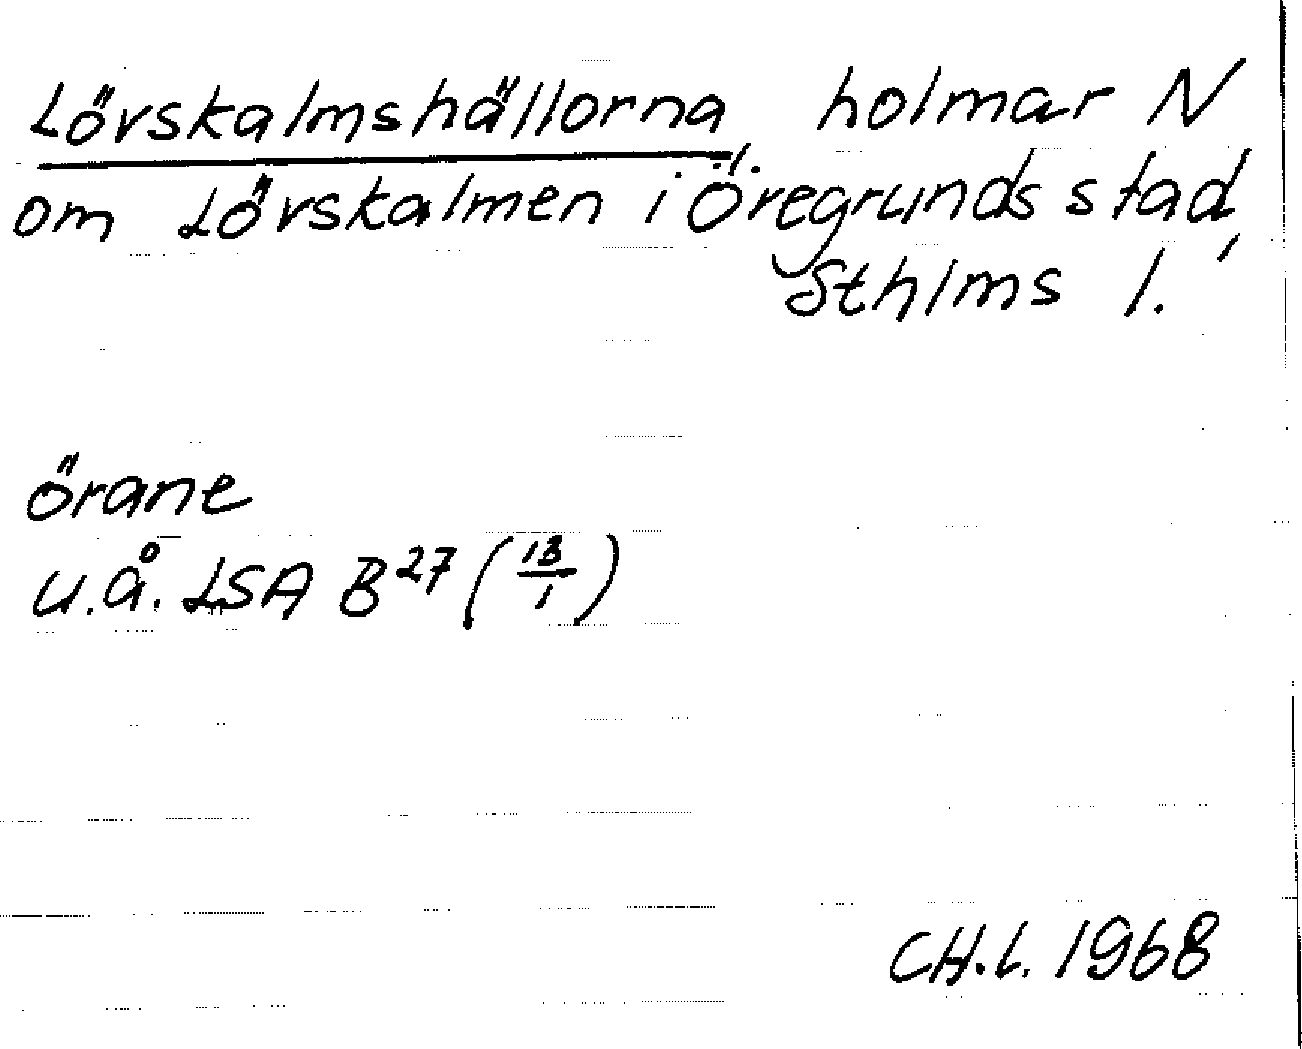 Lövskalmshällorna, holmar N
om Lövskalmen i Öregrunds stad,
Sthlms l.
örane
u.å. LSA B27 (13/1)
CH.L. 1968